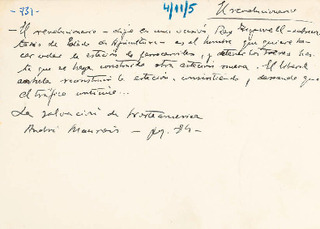 -731-
4/11/5
El revolucionario
- El revolucionario - dijo en una ocasión Ray Tugwell - subsecre-
tario de Estado de Agricultura - es el hombre que quiere ha-
cer volar la estación de ferrocarriles y detener los trenes has-
ta que se haya construido otra estación nueva. El liberal
anhela reconstruir la estación, consintiendo y deseando que
el tráfico continúe...
La salvación de Norteamérica
André Maurois - pág. 86 -